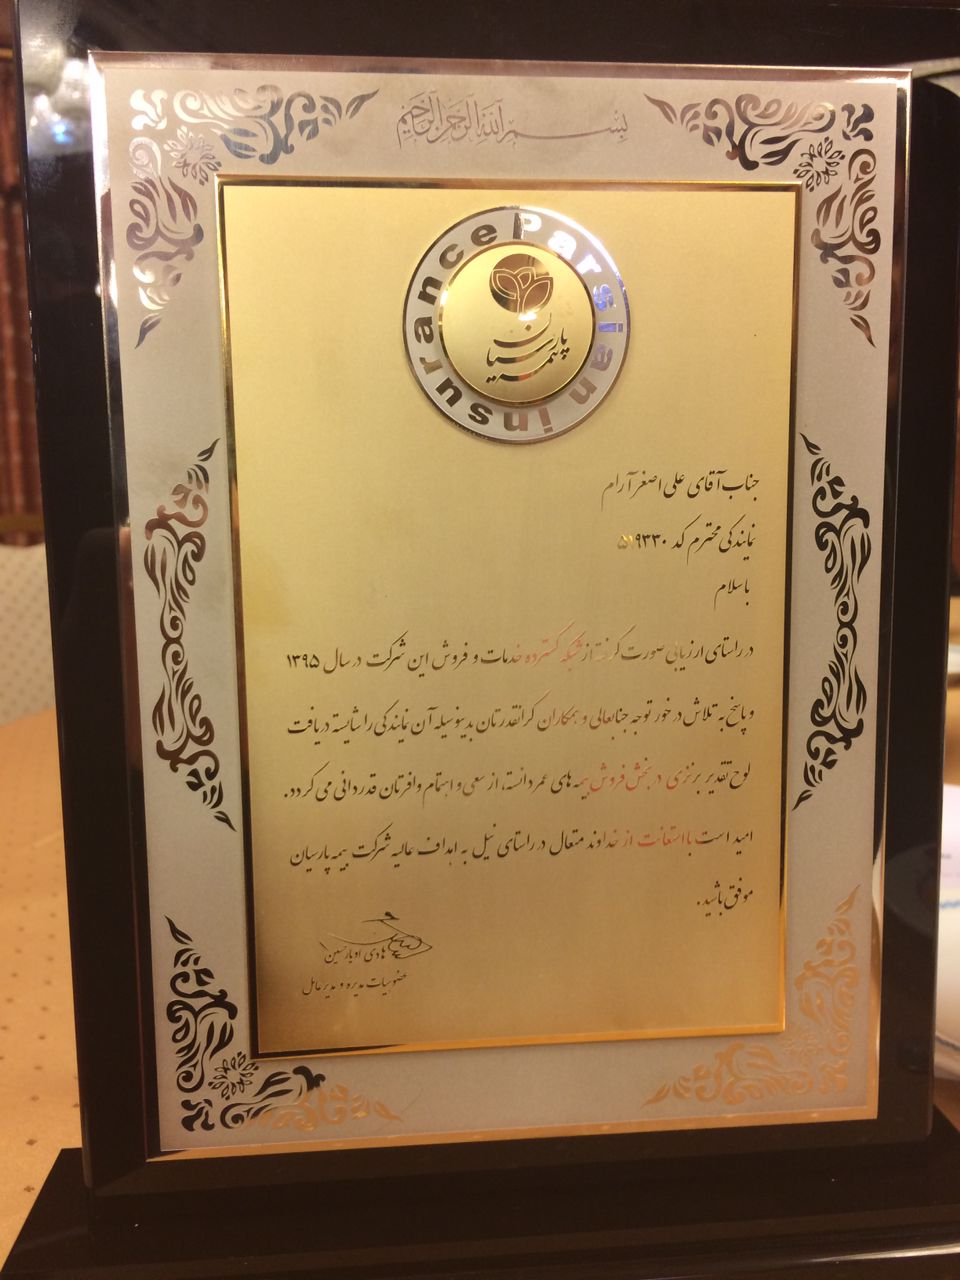 بسم الله الرحمن الرحیم
Parsian insurance
بیمه پارسیان
جناب آقای علی اصغر آرام
نمایندگی محترم کد ۵۱۹۳۳۰
با سلام
در راستای ارزیابی صورت گرفته از شبکه گسترده خدمات و فروش این شرکت در سال ۱۳۹۵
و پاسخ به تلاش در خور توجه جنابعالی و همکاران گرانقدرتان بدینوسیله آن نمایندگی را شایسته دریافت
لوح تقدیر برنزی در بخش فروش بیمه های عمر دانسته، از سعی و اهتمام وافرتان قدردانی می گردد.
امید است با استعانت از خداوند متعال در راستای نیل به اهداف عالیه شرکت بیمه پارسیان
موفق باشید.
هادی اویارحسین
عضو هیات مدیره و مدیرعامل